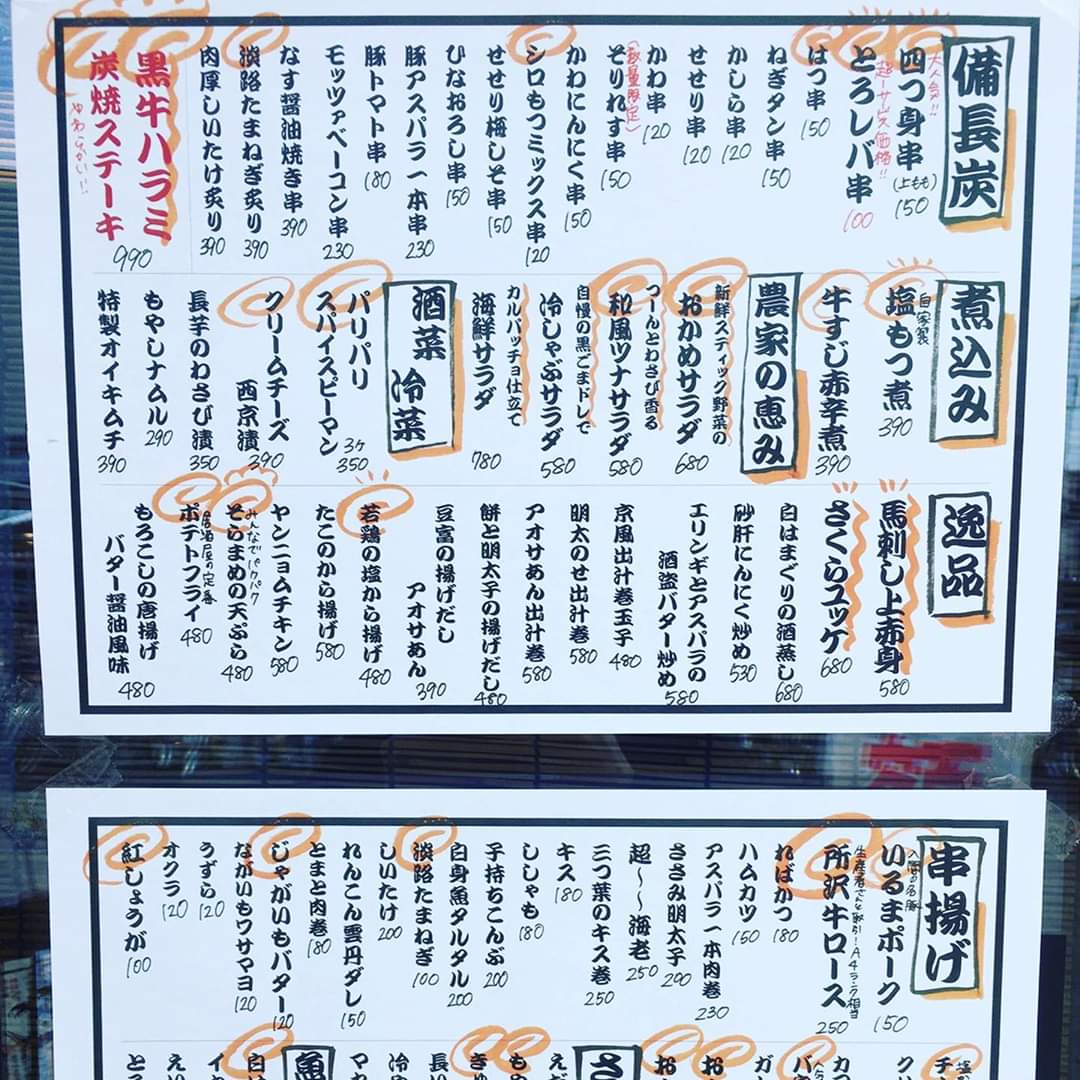 備長炭
大人気!!
四つ身串
(上もも)
150
超一サービス価格!!
とろしバ串
100
はつ串
150
ねぎタン串
150
かしら串
120
せせり串
120
かわ串
120
(数量限定)
そりれす串
150
かわにんにく串
150
シロもつミックス串
120
せせり梅しそ串
150
ひなおろし串
150
豚アスパラ一本串
230
豚トマト串
180
モッツァベーコン串
230
なす醤油焼き串
390
淡路たまねぎ炙り
390
肉厚しいたけ炙り
390
黒牛ハラミ
炭焼ステーキ
やわらかい!!
990
煮込み
自家製
塩もつ煮
390
牛すじ赤辛煮
390
農家の恵み
新鮮スティック野菜の
おかめサラダ
680
つーんとわさび香る
和風ツナサラダ
580
自慢の黒ごまドレで
冷しゃぶサラダ
580
カルパッチョ仕立て
海鮮サラダ
780
酒菜
冷菜
パリパリ
スパイスピーマン
3ヶ
350
クリームチーズ
西京漬
390
長芋のわさび漬
350
もやしナムル
290
特製オイキムチ
390
逸品
馬刺し上赤身
580
さくらユッケ
680
白はまぐりの酒蒸し
680
砂肝にんにく炒め
530
エリンギとアスパラの
酒盗バター炒め
580
京風出汁巻玉子
480
明太のせ出汁巻
580
アオサあん出汁巻
580
餅と明太子の揚げだし
480
豆富の揚げだし
アオサあん
390
若鶏の塩から揚げ
480
たこのから揚げ
580
ヤンニョムチキン
580
みんなでパクパク
そらまめの天ぷら
480
居酒屋の定番
ポテトフライ
480
もろこしの唐揚げ
バター醤油風味
480
串揚げ
入間の名豚
いるまポーク
150
生産者さんと取引!A4ランク相当
所沢牛ロース
250
ればかつ
180
ハムカツ
150
アスパラ一本肉巻
230
ささみ明太子
290
超〜〜海老
250
三つ葉のキス巻
250
キス
180
ししゃも
180
子持ちこんぶ
200
白身魚タルタル
200
淡路たまねぎ
100
しいたけ
200
れんこん雲丹ダレ
150
とまと肉巻
180
じゃがいもバター
120
ながいもワサマヨ
120
うずら
120
オクラ
120
紅しょうが
100